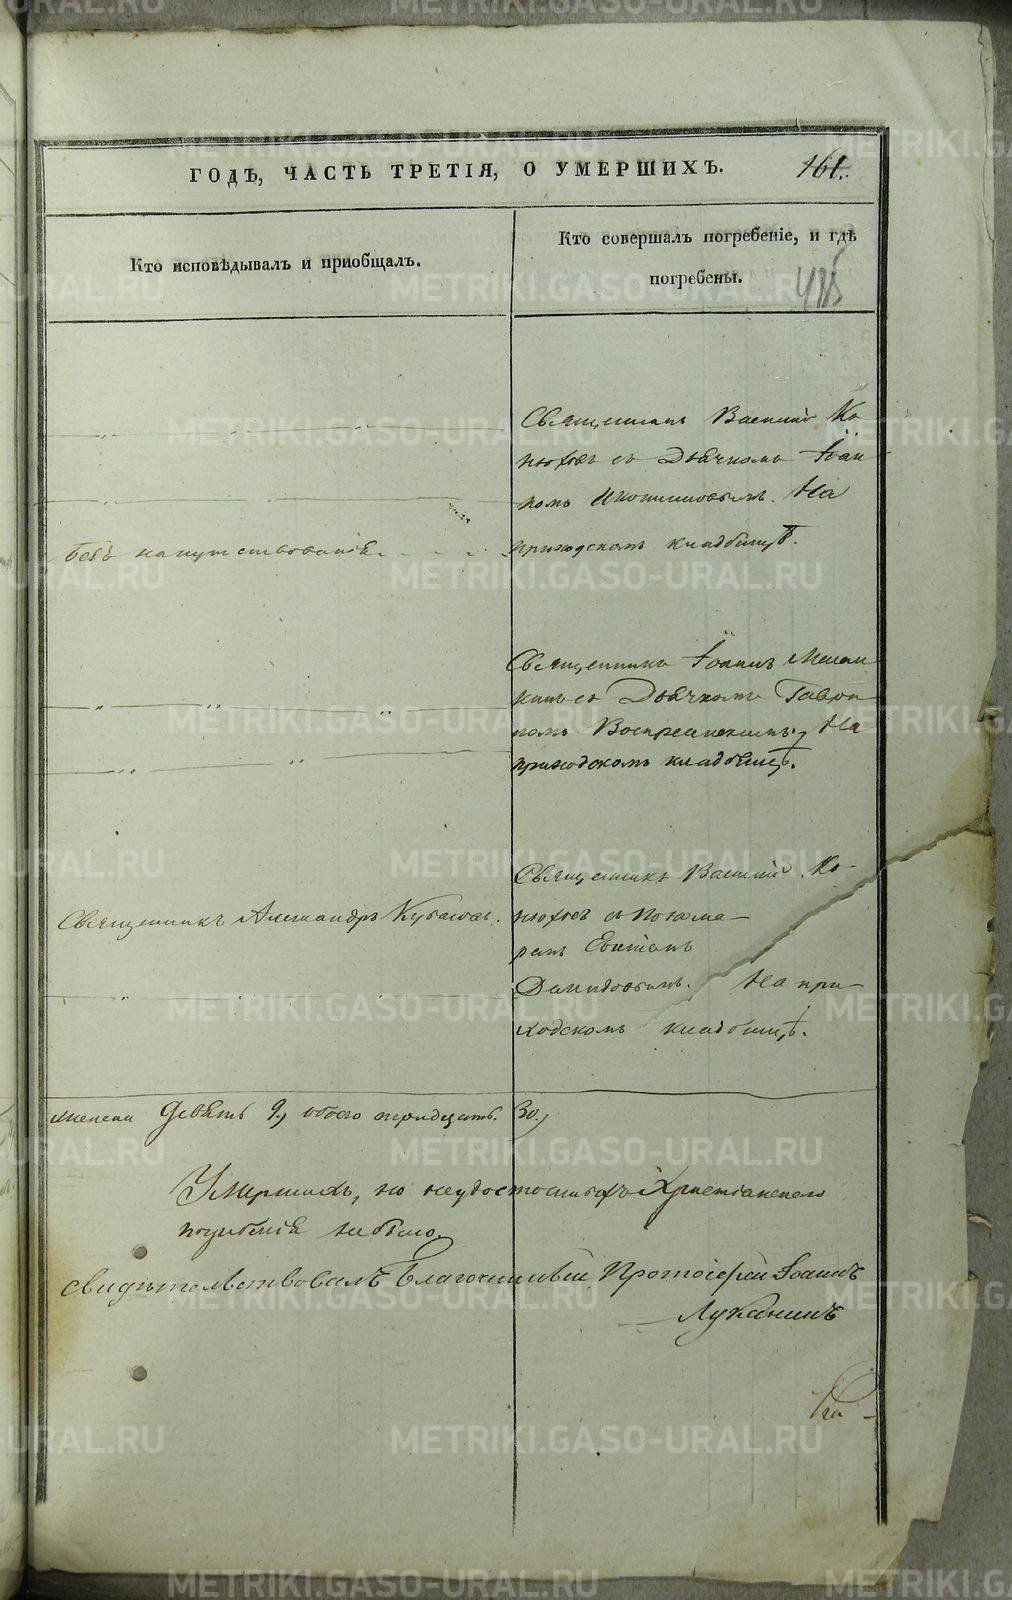 ГОДѢ, ЧАСТЬ ТРЕТІЯ, О УМЕРШИХЪ.
161.
Кто исповѣдывалъ и пріобщалъ.
Кто совершалъ погребеніе, и гдѣ
погребены.
Священникъ Василій Ко
нюховъ съ Дьячкомъ Іоан
номъ На
безъ напутствованія
приходскомъ кладбищѣ.
Священникъ Іоаннъ
съ Дьячкомъ Гаври
ломъ Воскресенскимъ, На
приходскомъ кладбищѣ.
Священникъ Василій Ко-
Священникъ Александръ
нюховъ съ Понома-
ремъ
Давидовымъ. На при-
ходскомъ кладбищѣ.
женска девять 9, обоего тридцать. 30,
Умершихъ, но неудостоившихъ Христіанскаго
погребенія небыло.
свидѣтельствовалъ Благочинный Протоіерей Іоаннъ
Луканинъ
METRIKI.GASO-URAL.RU